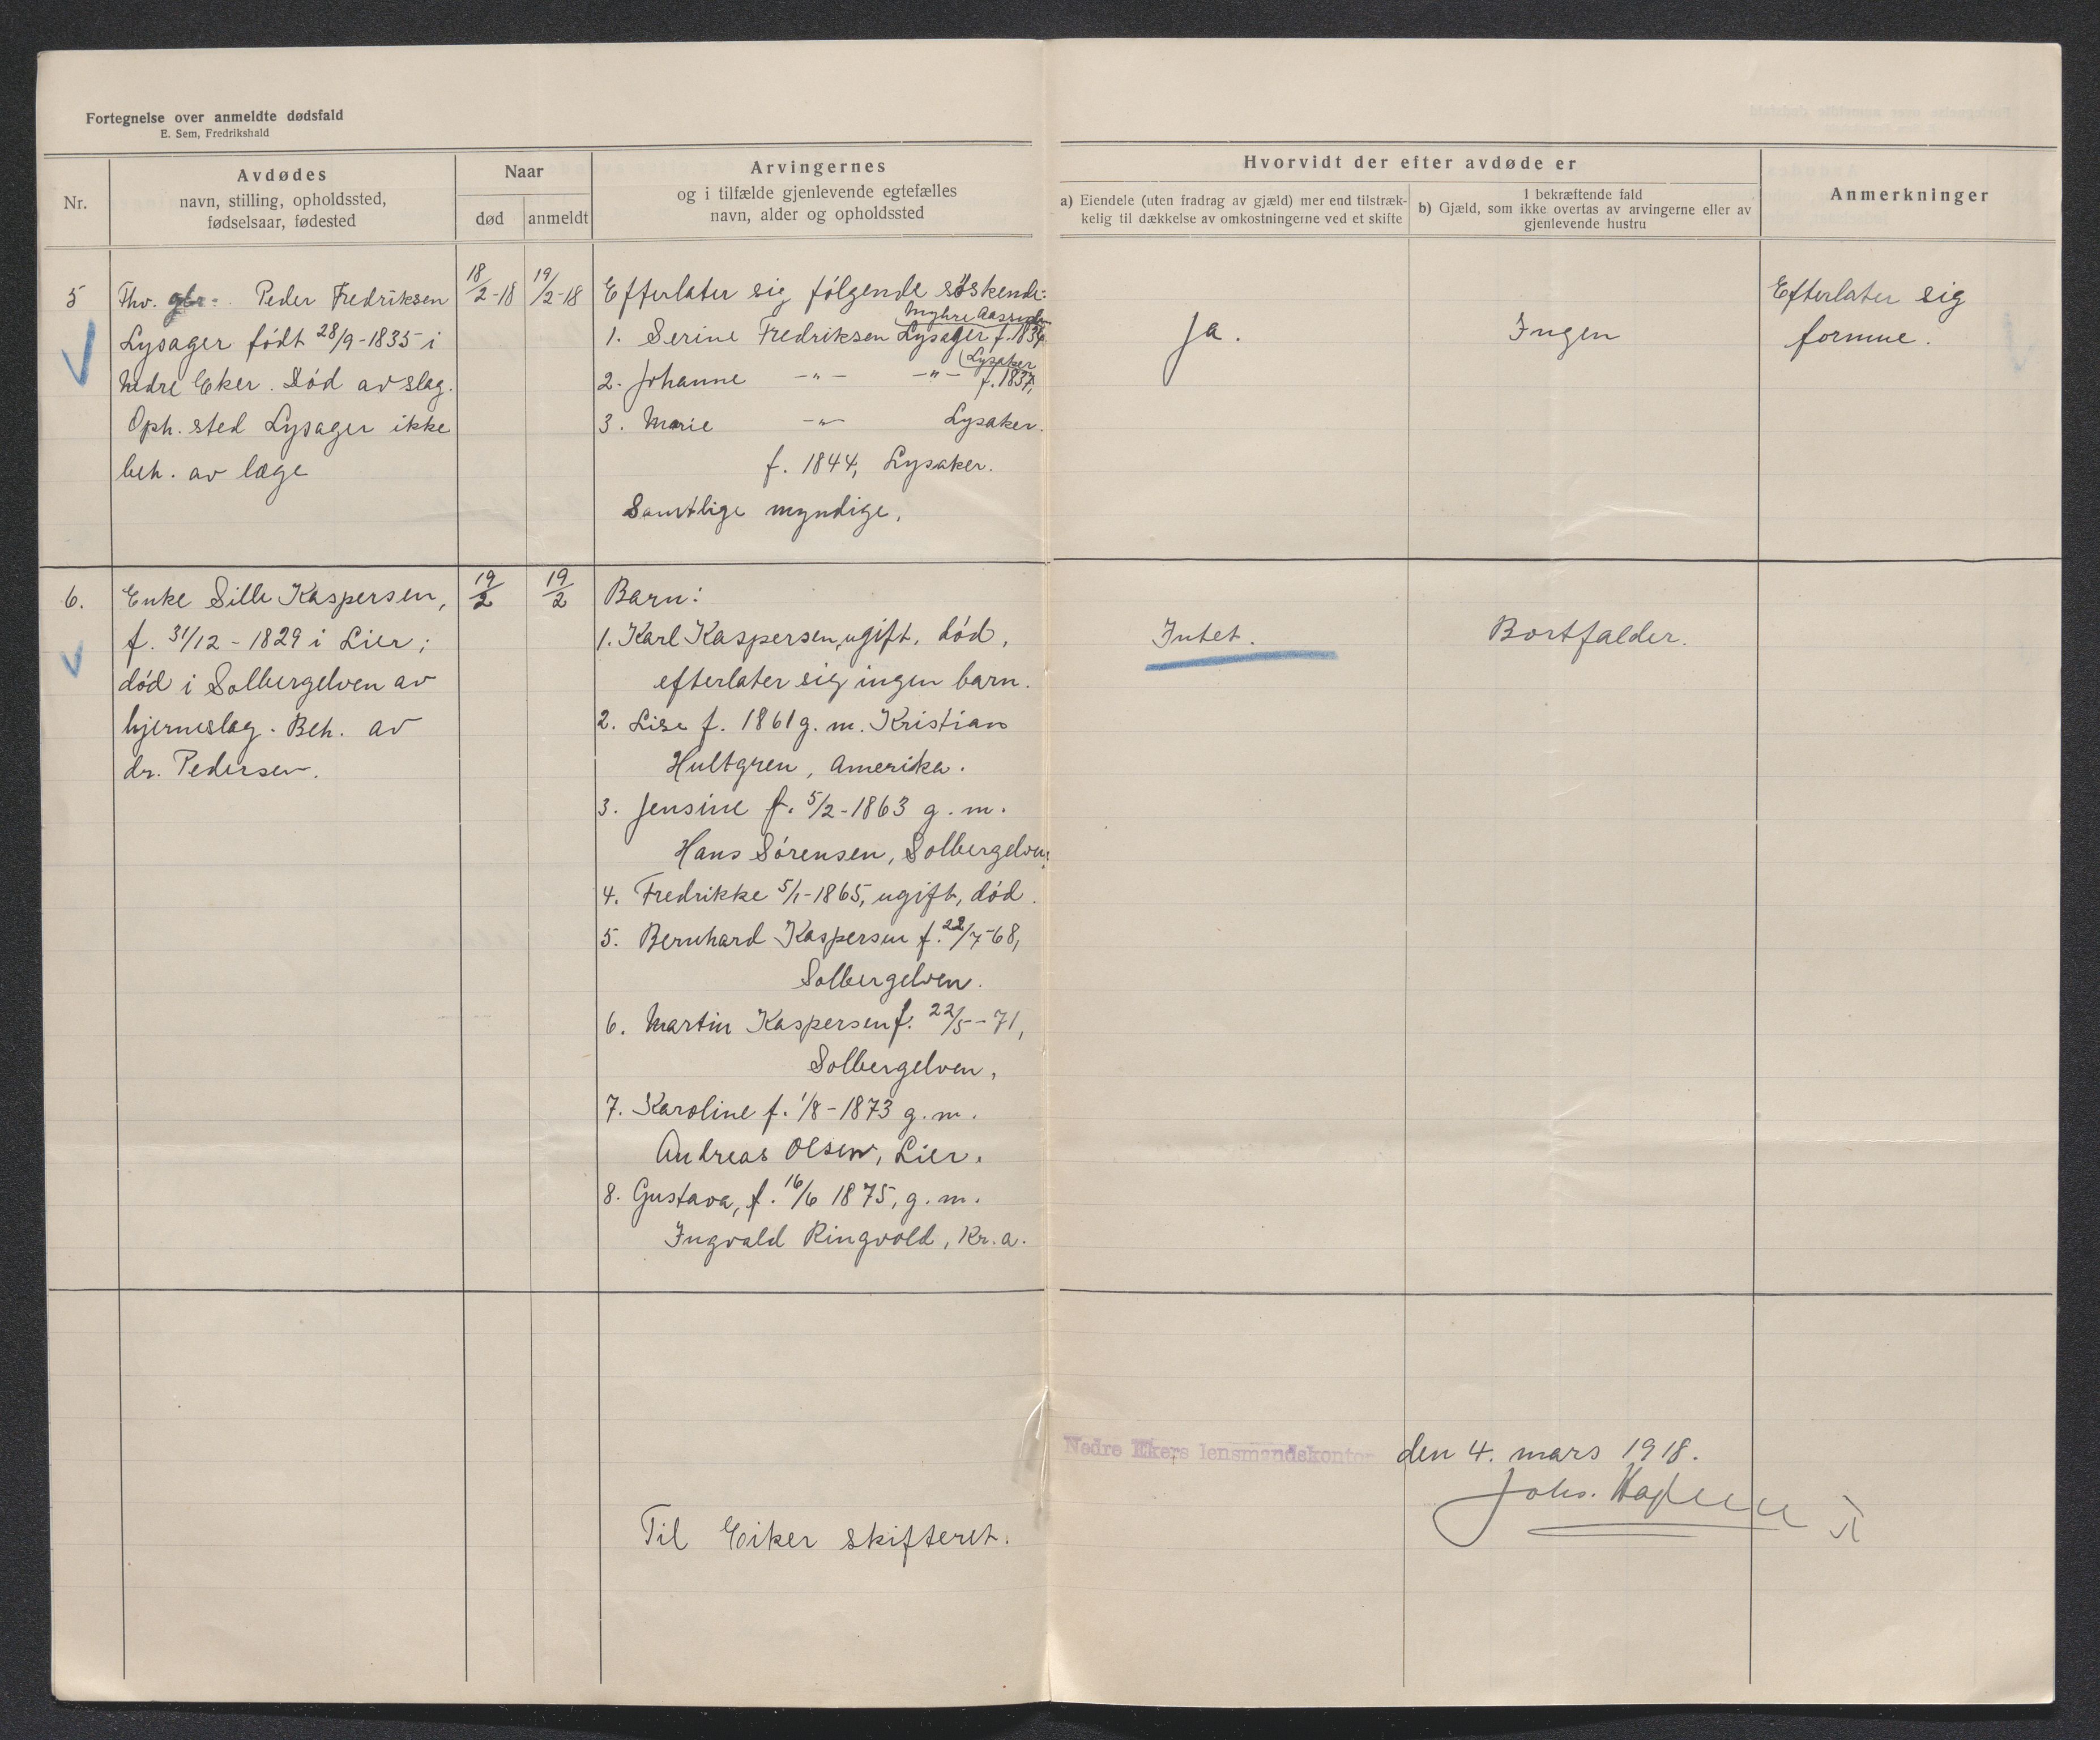 Fortegnelse over anmeldte dødsfald
E. Sem, Fredrikshald
Nr.
Avdødes
navn, stilling, opholdssted,
fødselsaar, fødested
Naar
død
anmeldt
Arvingernes
og i tilfælde gjenlevende egtefælles
navn, alder og opholdssted
Hvorvidt der efter avdøde er
a) Eiendele (uten fradrag av gjæld) mer end tilstræk-
kelig til dækkelse av omkostningerne ved et skifte
I bekræftende fald
b) Gjæld, som ikke overtas av arvingerne eller av
gjenlevende hustru
Anmerkninger
5
Fhv. gbr. Peder Fredriksen
Lysager født 28/9-1835 i
Nedre Eker. Død av slag.
Oph. sted Lysager ikke
beh. av læge
18/2-18
19/2-18
Efterlater sig følgende søskende:
Myhre
1. Serine Fredriksen Lysager f. 1834
Lysaker
2. Johanne -"- -"- f. 1837,
3. Marie -"- Lysaker.
f. 1844, Lysaker.
Samtlige myndige.
Ja.
Ingen
Efterlater sig
formue.
6.
Enke Sille Kaspersen,
f. 31/12-1829 i Lier;
død i Solbergelven av
hjerneslag. Beh. av
dr. Pedersen.
19/2
19/2
Barn:
1. Karl Kaspersen, ugift, død,
efterlater sig ingen barn.
2. Lise f. 1861 g. m. Kristian
Hultgren, Amerika.
3. Jensine f. 5/2-1863 g. m.
Hans Sørensen, Solbergelven.
4. Fredrikke 5/1-1865, ugift, død.
5. Bernhard Kaspersen f. 22/7-68,
Solbergelven.
6. Martin Kaspersen f. 22/5-71,
Solbergelven,
7. Karoline f. 1/8-1873 g. m.
Andreas Olsen, Lier.
8. Gustava, f. 16/6 1875, g. m.
Ingvald Ringvold, Kr.a.
Intet.
Bortfalder.
Nedre Ekers lensmandskontor den 4. mars 1918.
Johs.
Til Eiker skifteret.